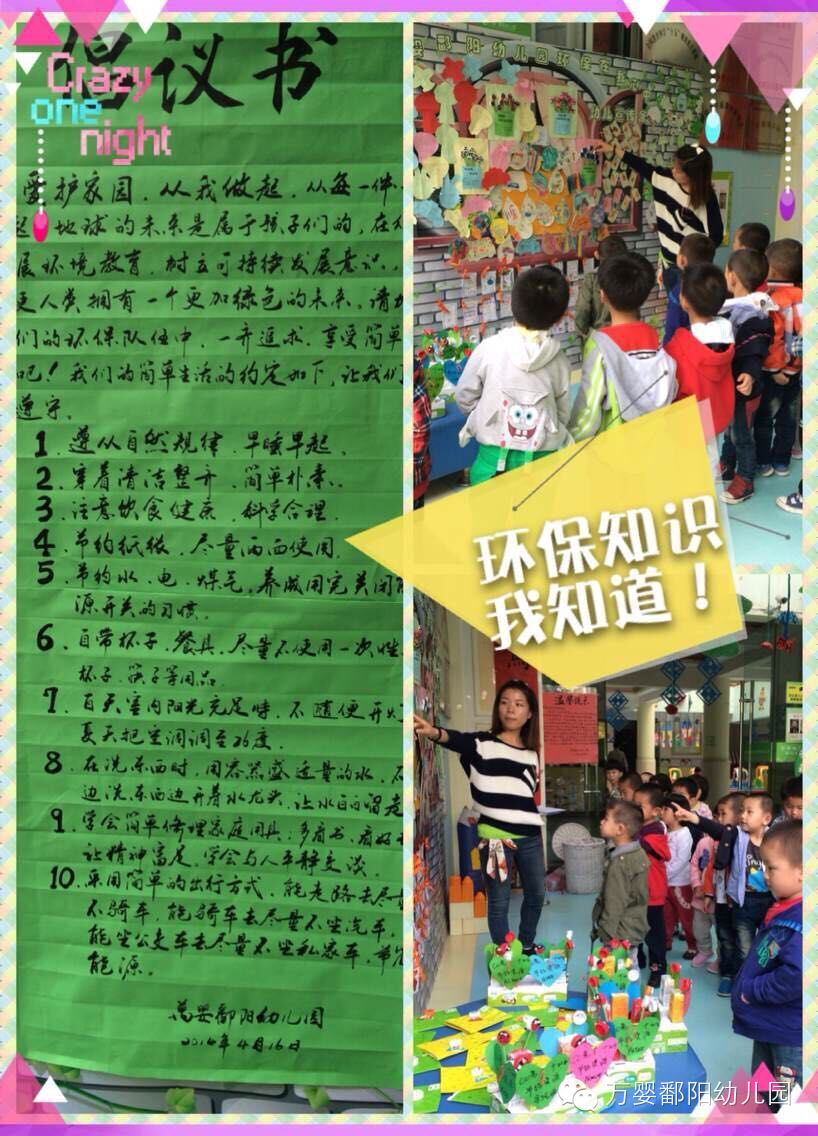 倡议书
Crazy
one
night
爱护家园，从我做起，从每一件
起 地球的未来是属于孩子们的，在
展环境教育，树立可持续发展意识，
更人类拥有一个更加绿色的未来。请
们的环保队伍中，一齐追求、享受简单
吧！我们的简单生活的约定如下，让我们
遵守。
1、遵从自然规律，早睡早起。
2、穿着清洁整齐，简单朴素。
3、注意饮食健康，科学合理。
4、节约纸张，尽量两面使用。
5、节约水、电、煤气，养成用完关闭
源开关的习惯。
6、自带杯子、餐具，尽量不使用一次性
杯子、筷子等用品。
7、白天室内阳光充足时，不随便开灯
夏天把空调调至26度。
8、在洗东西时，用容器盛适量的水，不
边洗东西边开着水龙头，让水白白留走
9、学会简单修理家庭用具；多看书、看好书
让精神富足，学会与人平静交谈。
10、采用简单的出行方式，能走路去尽量
不骑车，能骑车去尽量不坐汽车，
能坐公交车去尽量不坐私家车，节约
能源。
万婴鄱阳幼儿园
2014年4月16日
鄱阳幼儿园环保在
环保知识
我知道！
温馨提示
万婴鄱阳幼儿园